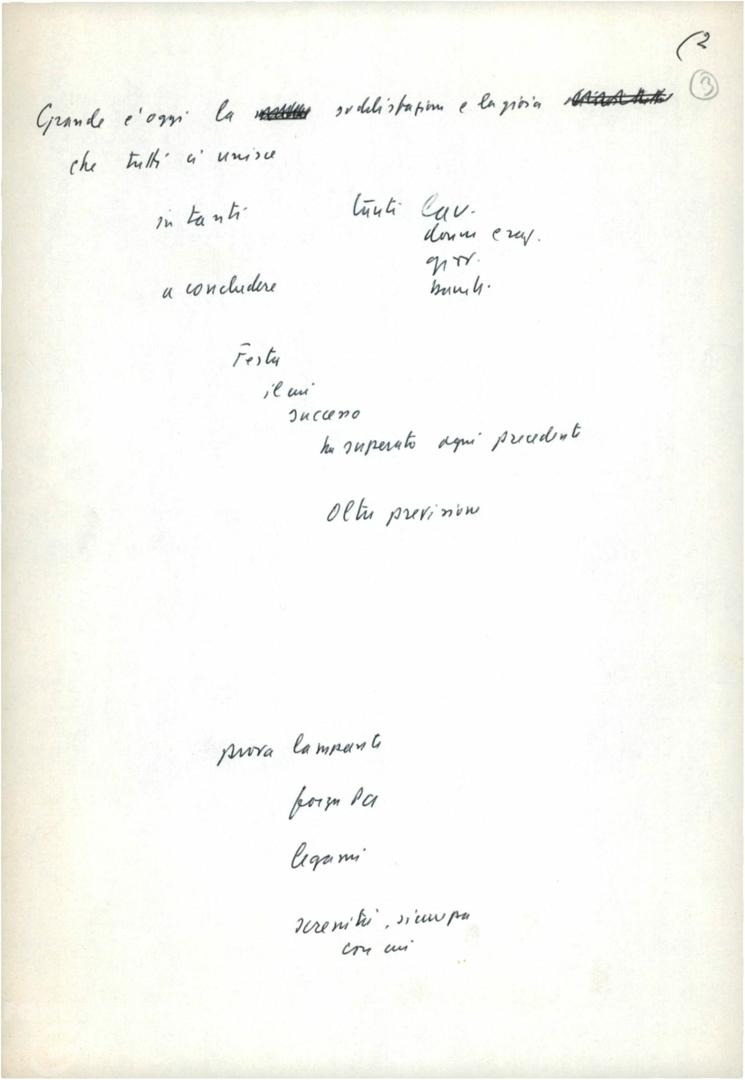 (2
3
Grande è oggi la soddisfazione e la gioia
che tutti ci unisce
in tanti tanti Lav.
donne e rag.
giov.
a concludere
Festa
il cui
successo
ha superato ogni precedente
Oltre previsione
prova lampante
forza PCI
legami
serenità, sicurezza
con cui